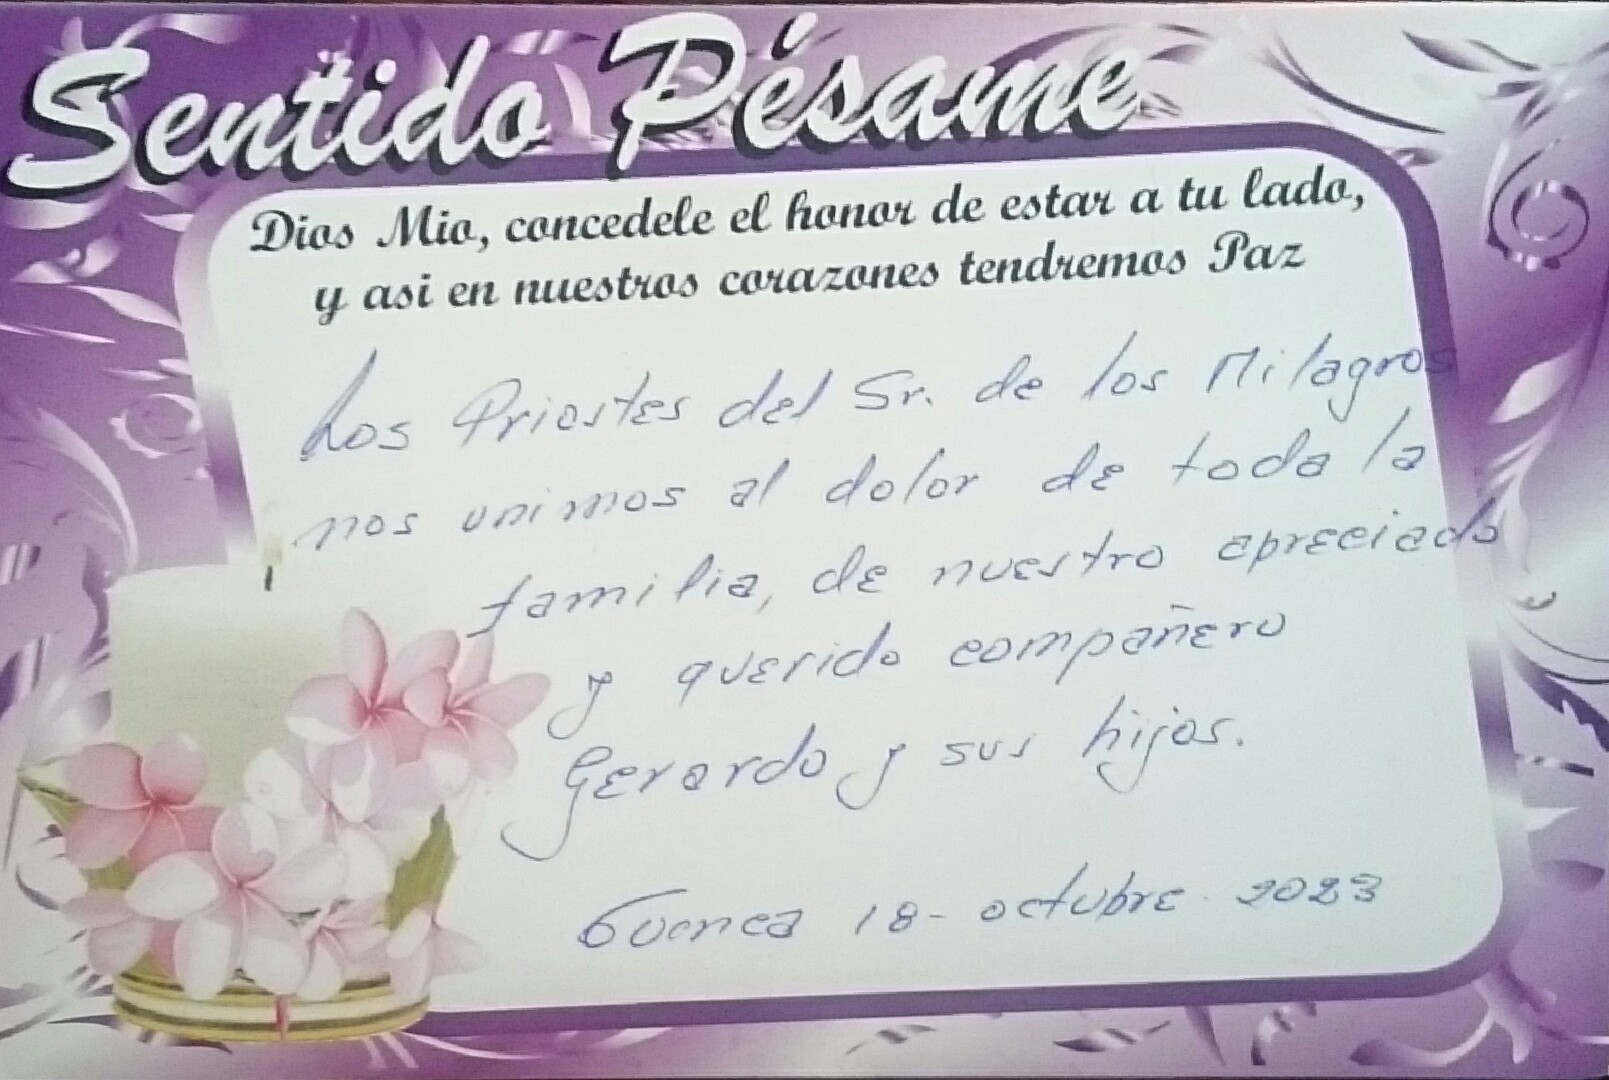 Sentido Pésame
Dios Mio, concedele el honor de estar a tu lado,
y asi en nuestros corazones tendremos Paz
Los Priostes del Sr. de los Milagros
nos unimos al dolor de toda la
familia, de nuestro apreciado
y querido compañero
Gerardo y sus hijos.
Cuenca 18 - octubre - 2023